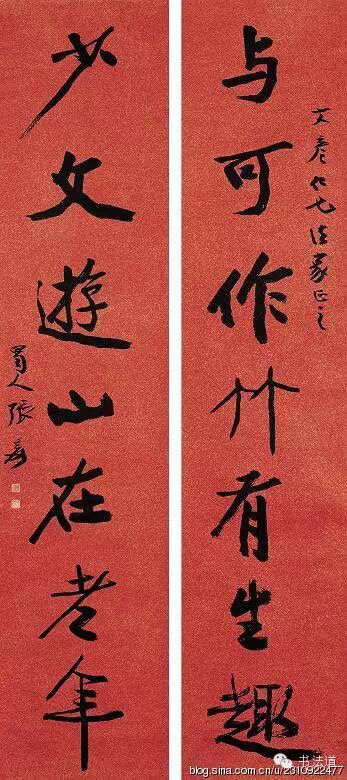 文彦仁兄法家正之
与可作竹有生趣
少文遊山在老年
蜀人張爰
书法道
blog.sina.com.cn/u/2310922477